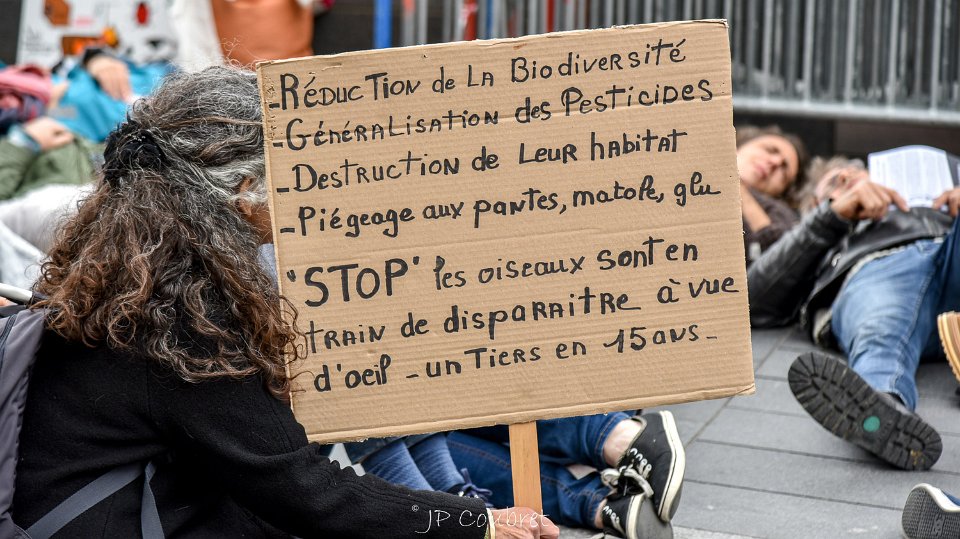 -Réduction de la Biodiversité
-Généralisation des Pesticides
-Destruction de Leur habitat
-Piégeage aux pantes, matole, glu
'STOP' les oiseaux sont en
train de disparaitre à vue
d'oeil - un Tiers en 15 ans-
©JP Coubret